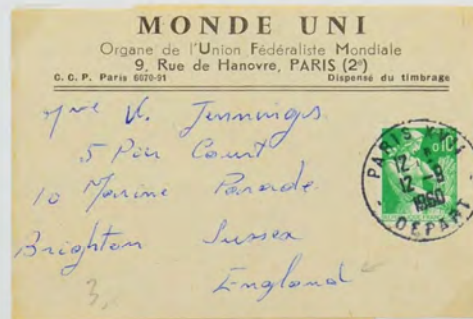 MONDE UNI
Organe de l'Union Fédéraliste Mondiale
9, Rue de Hanovre, PARIS (2e)
C. C. P. Paris 6070-91 Dispensé du timbrage
Mme V. Jennings
5 Pier Court
10 Marine Parade
Brighton Sussex
England
3,
0,10
PARIS XVI
12
12-9
1960
DEPART